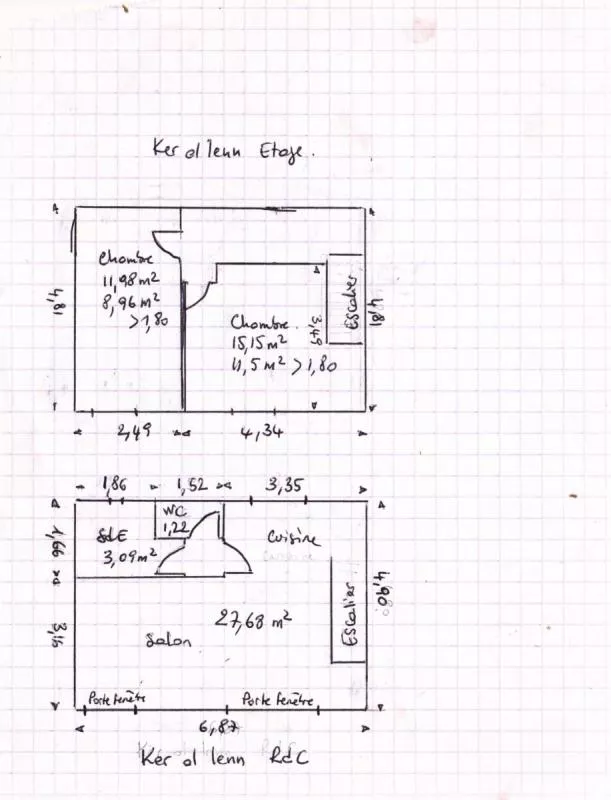 Ker al lenn Etage.
4,81
Chambre
11,98 m²
8,96 m²
>1,80
Chambre.
15,15 m²
11,5 m² >1,80
3,49
Escalier
4,81
2,49
4,34
1,86
1,52
3,35
1,66
SdE
3,09 m²
WC
1,22
Cuisine
4,90
3,16
Salon
27,68 m²
Escalier
Porte fenêtre
Porte fenêtre
6,87
Ker al lenn RdC